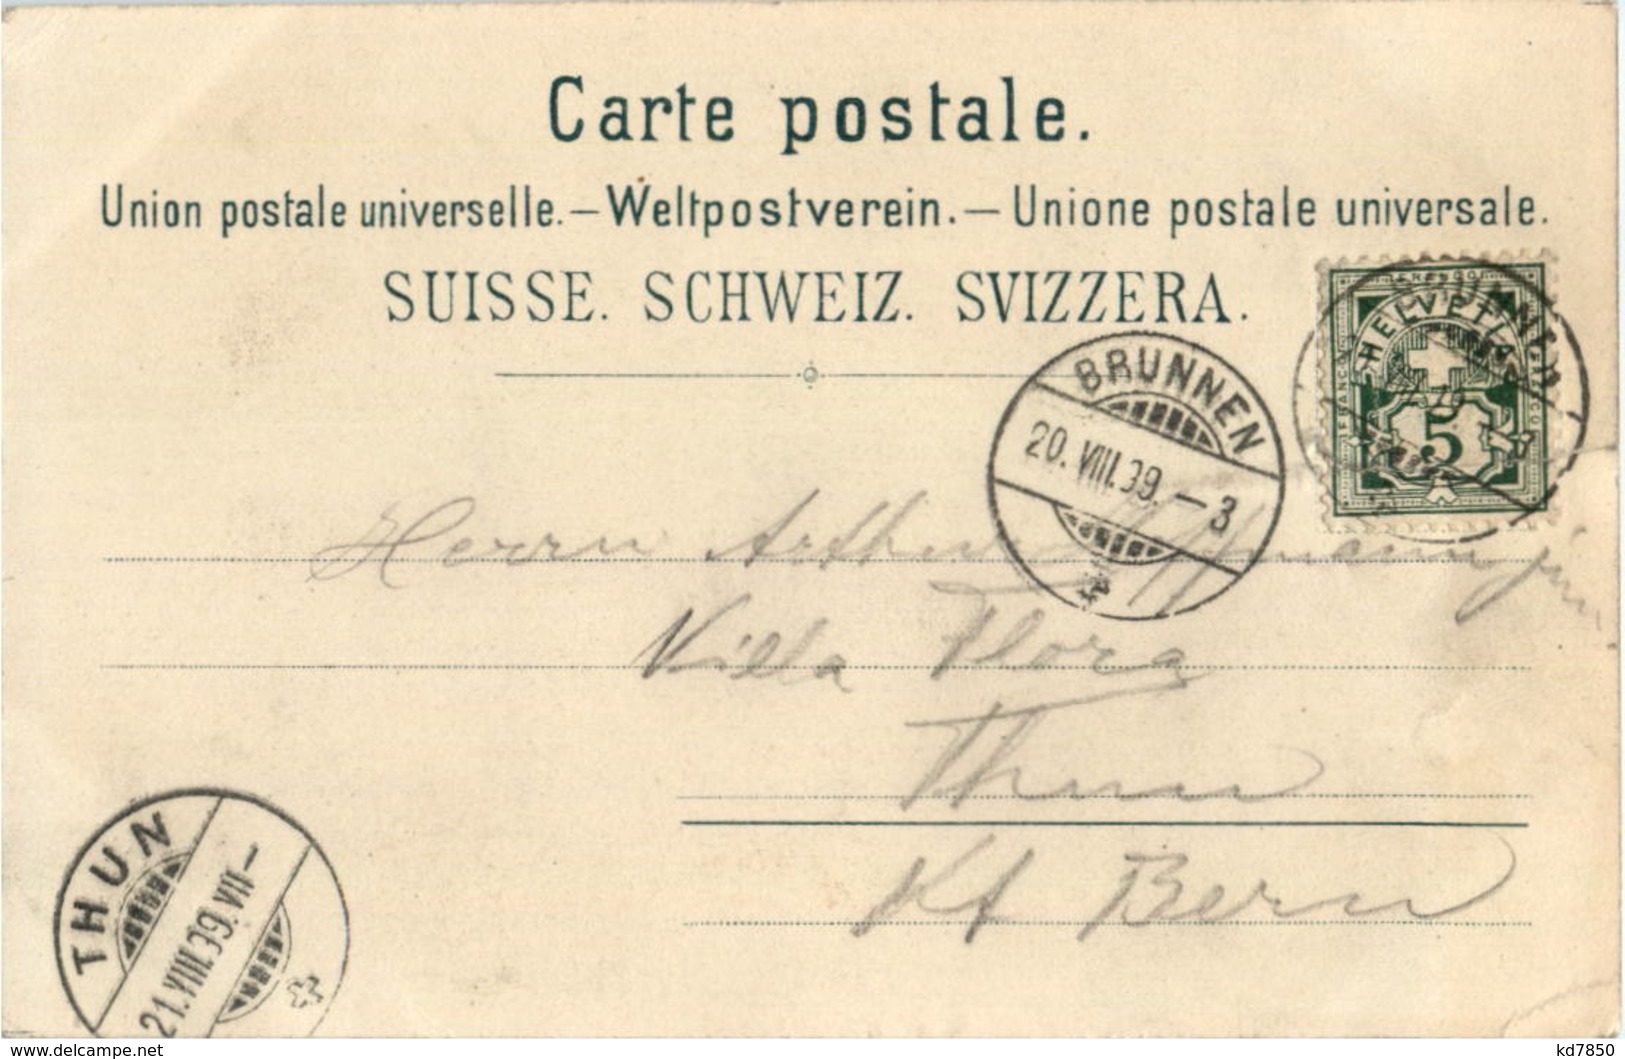 Carte postale.
Union postale universelle.—Weltpostverein.—Unione postale universale.
SUISSE. SCHWEIZ. SVIZZERA.
FRANCO
HELVETIA
5
BRUNNEN
BRUNNEN
20. VIII.99.—3
Herrn Arthur jun.
Villa Flora
Thun
Kt Bern
THUN
21.VIII.99.VII—
www.delcampe.net
kd7850